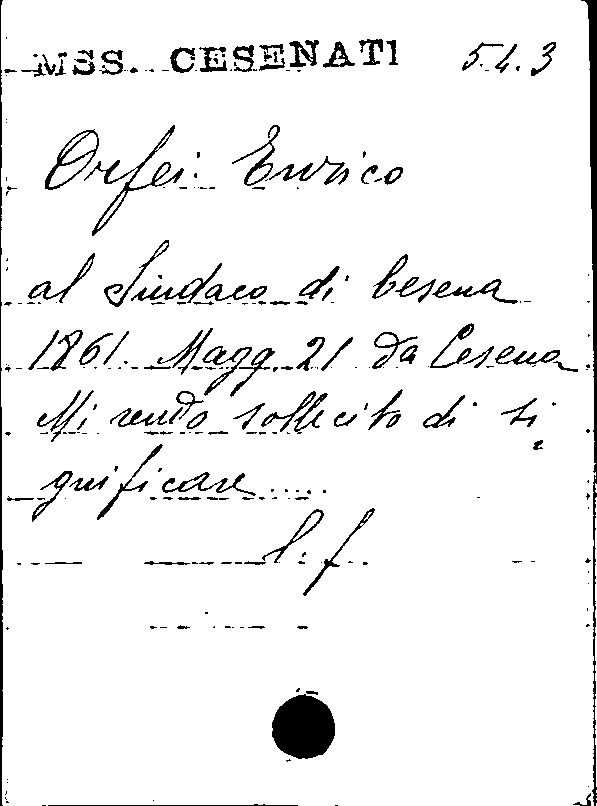 MSS. CESENATI 5.4.3
Orfei Enrico
al Sindaco di Cesena
1861. Magg. 21 da Cesena
Mi rendo sollecito di si
gnificare.....
l. f.